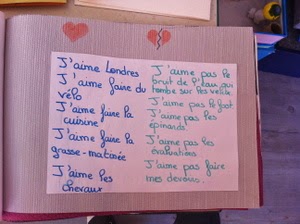 J'aime Londres
J'aime faire du
vélo
J'aime faire la
cuisine
J'aime faire la
grasse-matinée
J'aime les
chevaux
J'aime pas le
bruit de l'eau qui
tombe sur les vélos
J'aime pas le foot
J'aime pas les
épinards
J'aime pas les
évaluations.
J'aime pas faire
mes devoirs.